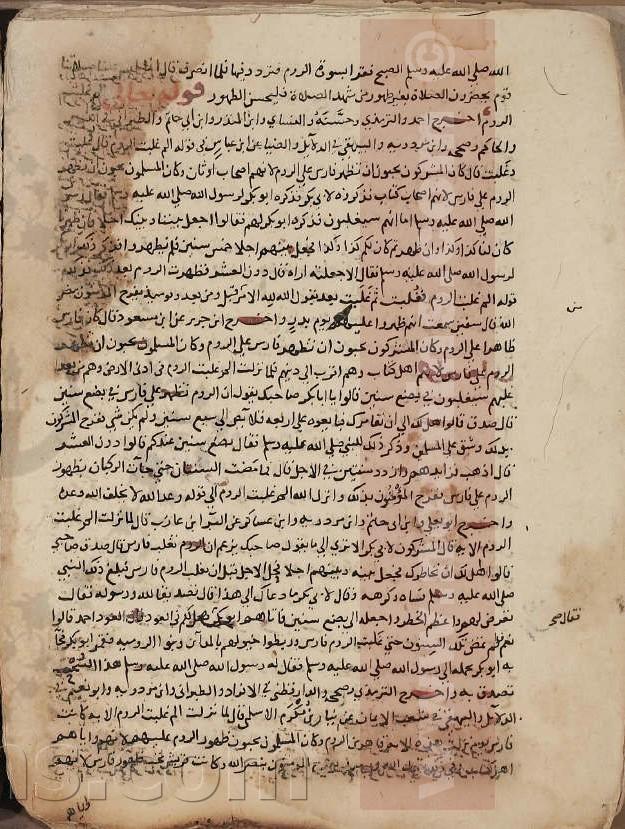 الله صلى الله عليه وسلم الصبح فقرا بسورة الروم فتردد فيها فلما انصرف قال
قوم يحضرون الصلاة بغير طهور من شهد الصلاة فليحسن الطهور قوله تعالى
الروم اخرج احمد والترمذي وحسنه والنسائي وابن المنذر وابن ابي حاتم والطبراني في
والحاكم وصححه وابن مردويه والبيهقي في الدلايل والضيا عن ابن عباس في قوله الم غلبت الروم قال غلبت
وغلبت قال كان المشركون يحبون ان تظهر فارس على الروم لانهم اصحاب اوثان وكان المسلمون يحبون ان تظهر
الروم على فارس لانهم اصحاب كتاب فذكروه لابي بكر فذكره ابو بكر لرسول الله صلى الله عليه وسلم فقال رسول
الله صلى الله عليه وسلم اما انهم سيغلبون فذكره ابو بكر لهم فقالوا اجعل بيننا وبينك اجلا فان ظهرنا
كان لنا كذا وكذا وان ظهرتم كان لكم كذا وكذا فجعل بينهم اجلا خمس سنين فلم يظهروا فذكر ذلك
لرسول الله صلى الله عليه وسلم فقال الا جعلته اراه قال دون العشر فظهرت الروم بعد ذلك فذلك
قوله الم غلبت الروم فغلبت ثم غلبت بعد يقول الله لله الامر من قبل ومن بعد ويوميذ يفرح المومنون بنصر
الله قال سفين سمعت انهم ظهروا عليهم يوم بدر واخرج ابن جرير عن ابن مسعود قال كان فارس
ظاهرا على الروم وكان المشركون يحبون ان تظهر فارس على الروم وكان المسلمون يحبون ان تظهر
الروم على فارس لانهم اهل كتاب وهم اقرب الى دينهم فلما نزلت الم غلبت الروم في ادنى الارض وهم من بعد
غلبهم سيغلبون في بضع سنين قالوا يا ابا بكر ان صاحبك يقول ان الروم تظهر على فارس في بضع سنين
قال صدق قالوا هل لك الى ان نقامرك فبايعوه على اربعه قلايص الى سبع سنين ولم يكن شي ففرح المشركون
بذلك وشق على المسلمين وذكر ذلك للنبي صلى الله عليه وسلم فقال ما بضع سنين عندكم قالوا دون العشر
قال اذهب فزايدهم وازدد سنتين في الاجل قال فما مضت السنتان حتى جات الركبان بظهور
الروم على فارس ففرح المؤمنون بذلك وانزل الله الم غلبت الروم الى قوله وعد الله لا يخلف الله وعده
واخرج ابو يعلى وابن ابي حاتم وابن مردويه وابن عساكر عن البرا بن عازب قال لما نزلت الم غلبت
الروم الايه قال المشركون لابي بكر الا ترى الى ما يقول صاحبك يزعم ان الروم تغلب فارس قال صدق صاحبي
قالوا هل لك ان نخاطرك فجعل بينه وبينهم اجلا فحل الاجل قبل ان يغلب الروم فارس فبلغ ذلك النبي
صلى الله عليه وسلم فساه وكرهه وقال لابي بكر ما دعاك الى هذا قال تصديقا لله ورسوله فقال
تعرض لهم واعظم الخطر واجعله الى بضع سنين فاتاهم ابو بكر فقال هل لكم في العود فان العود احمد قالوا
نعم فلم تمض تلك السنون حتى غلبت الروم فارس وربطوا خيولهم بالمداين وبنوا الروميه فقمر ابو بكر فجا
به ابو بكر يحمله الى رسول الله صلى الله عليه وسلم فقال له رسول الله صلى الله عليه وسلم هذا السحت
تصدق به واخرج الترمذي وصححه والدارقطني في الافراد والطبراني وابن مردويه وابو نعيم في
الدلايل والبيهقي في شعب الايمان عن نيار بن مكرم الاسلمي قال لما نزلت الم غلبت الروم الايه كانت
فارس يوم نزلت هذه الايه قاهرين الروم وكان المسلمون يحبون ظهور الروم عليهم لانهم واياهم
اهل كتاب وكانت قريش تحب ظهور فارس لانهم
فقال صح
واياهم